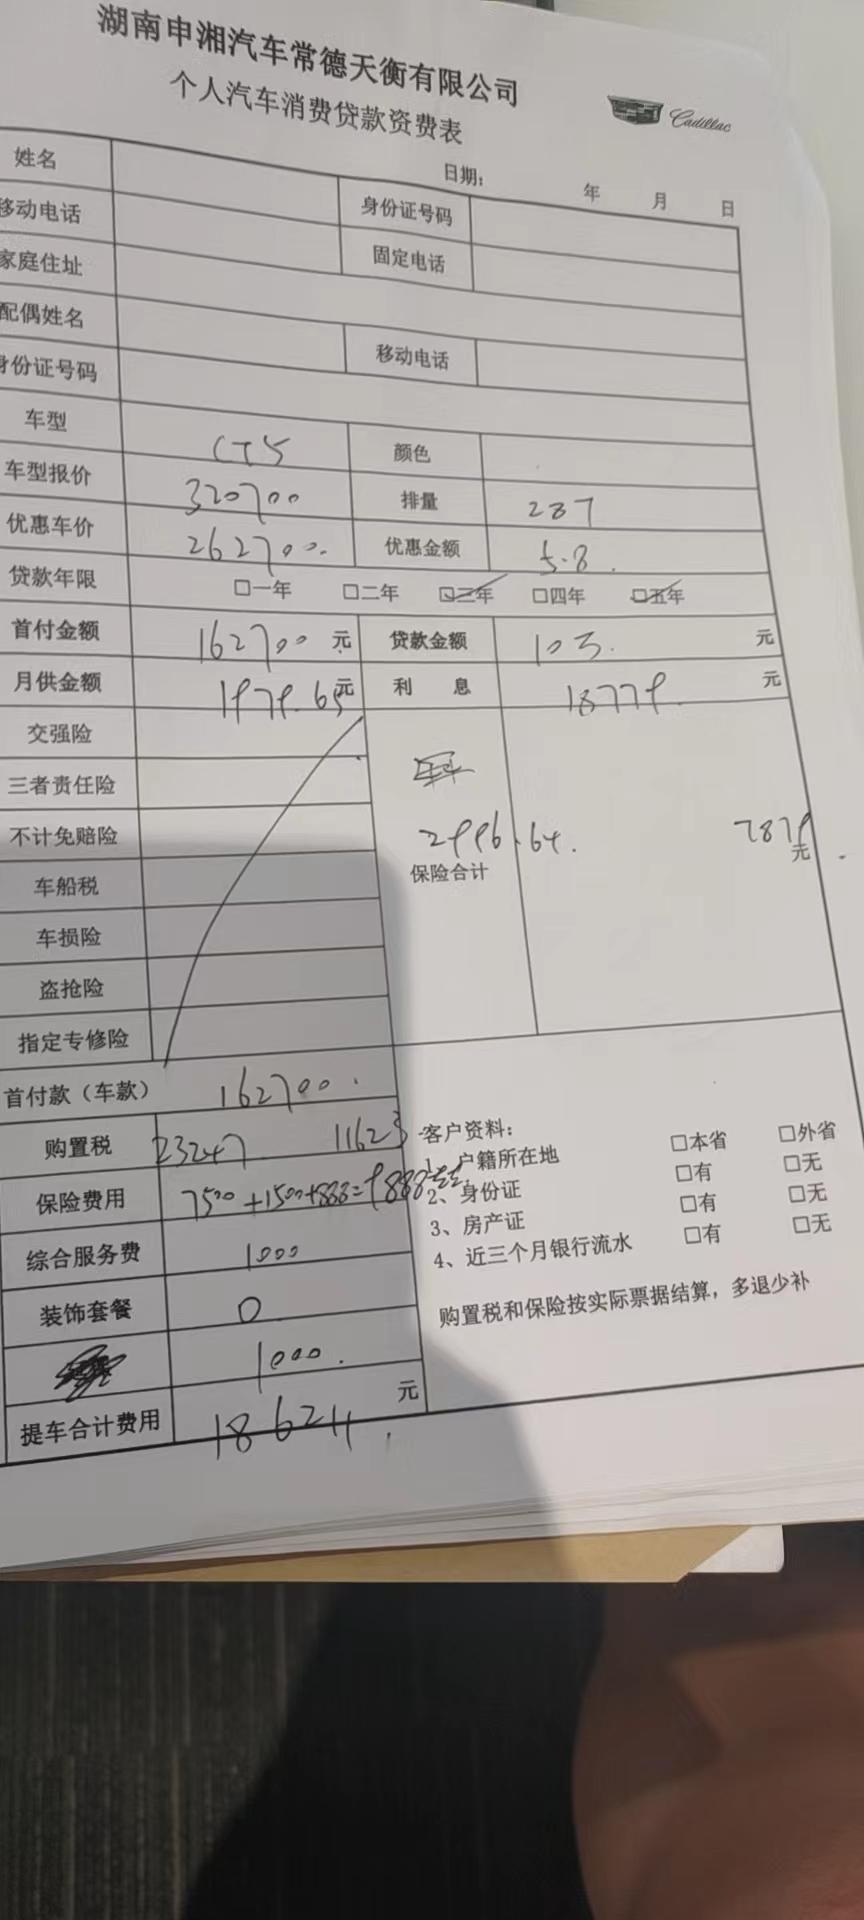 湖南申湘汽车常德天衡有限公司
个人汽车消费贷款资费表
Cadillac
日期： 年 月 日
姓名 身份证号码
移动电话 固定电话
家庭住址
配偶姓名 移动电话
身份证号码
车型 CT5 颜色
车型报价 320700 排量 28T
优惠车价 262700. 优惠金额 5.8.
贷款年限 □一年 □二年 □三年 □四年 □五年
首付金额 162700 元 贷款金额 10万. 元
月供金额 1979.65元 利息 18779. 元
交强险
三者责任险
不计免赔险 2996.64. 7879元
车船税 保险合计
车损险
盗抢险
指定专修险
首付款（车款） 162700.
购置税 23247 11623
保险费用 7500+1500+888=9888
综合服务费 1000
装饰套餐 0
1000.
提车合计费用 186211. 元
客户资料：
1、户籍所在地 □本省 □外省
2、身份证 □有 □无
3、房产证 □有 □无
4、近三个月银行流水 □有 □无
购置税和保险按实际票据结算，多退少补